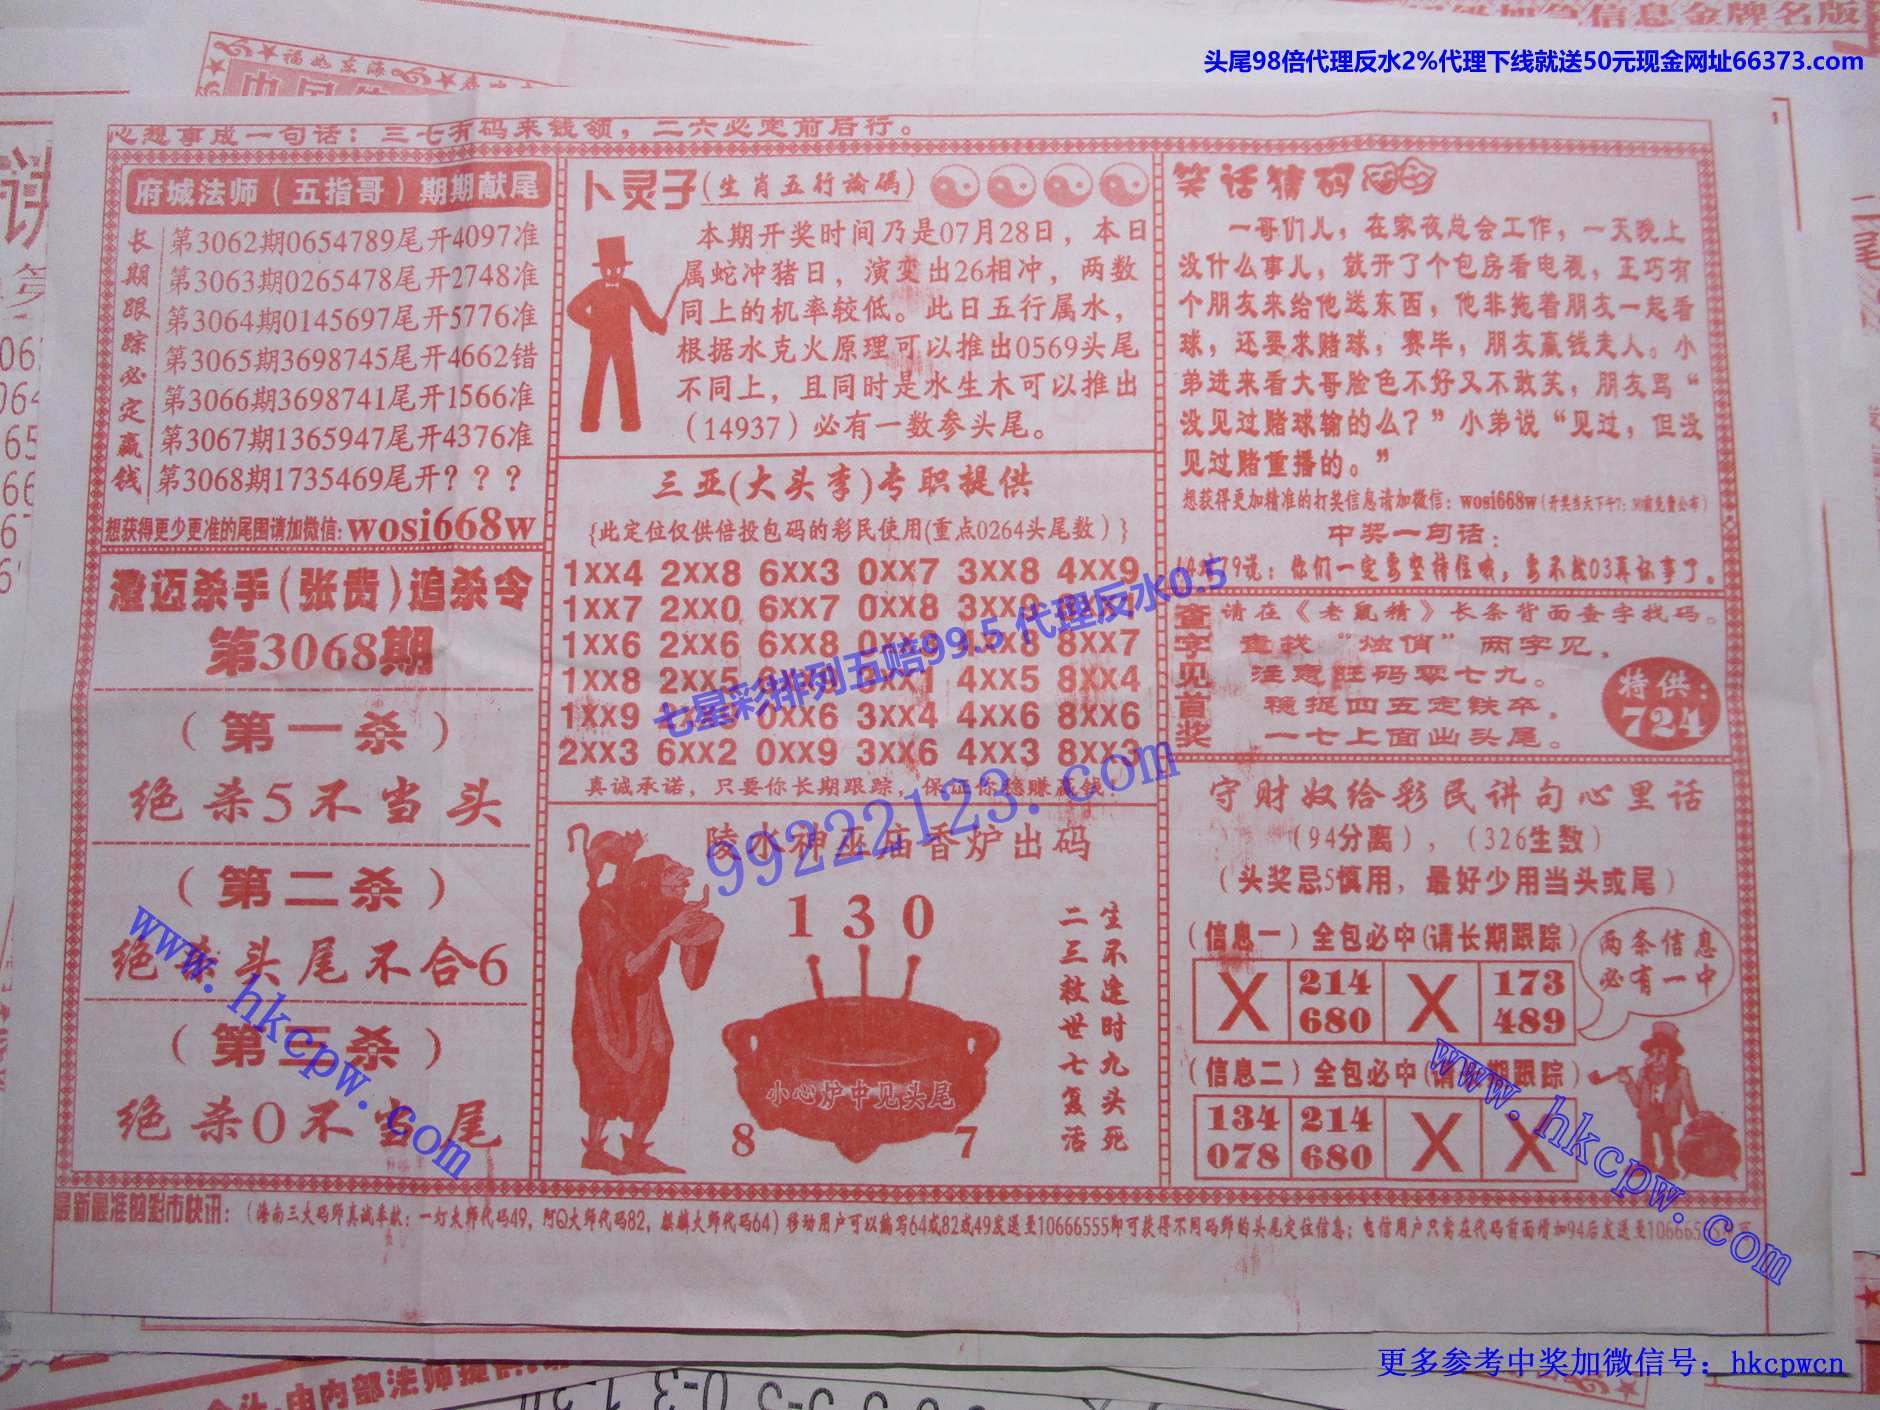 头尾98倍代理反水2%代理下线就送50元现金网址66373.com
心想事成一句话：三七有码来钱领，二六必定前后行。
府城法师（五指哥）期期献尾
长期跟踪必定赢钱
第3062期0654789尾开4097准
第3063期0265478尾开2748准
第3064期0145697尾开5776准
第3065期3698745尾开4662错
第3066期3698741尾开1566准
第3067期1365947尾开4376准
第3068期1735469尾开？？？
想获得更少更准的尾围请加微信：wosi668w
澄迈杀手（张贵）追杀令
第3068期
（第一杀）
绝杀5不当头
（第二杀）
绝杀头尾不合6
（第三杀）
绝杀0不当尾
卜灵子（生肖五行论码）
本期开奖时间乃是07月28日，本日
属蛇冲猪日，演变出26相冲，两数
同上的机率较低。此日五行属水，
根据水克火原理可以推出0569头尾
不同上，且同时是水生木可以推出
（14937）必有一数参头尾。
三亚（大头李）专职提供
{此定位仅供倍投包码的彩民使用（重点0264头尾数）}
1XX4 2XX8 6XX3 0XX7 3XX8 4XX9
1XX7 2XX0 6XX7 0XX8
1XX6 2XX6 6XX8 4XX8 8XX7
1XX8 2XX5 4XX5 8XX4
1XX9 0XX6 3XX4 4XX6 8XX6
2XX3 6XX2 0XX9 3XX6 4XX3 8XX3
真诚承诺，只要你长期跟踪，保证你稳赚赢钱！
陵水神巫庙香炉出码
130
小心炉中见头尾
8 7
生不逢时九头死
二三数世七复活
笑话猜码
一哥们儿，在家夜总会工作，一天晚上
没什么事儿，就开了个包房看电视，正巧有
个朋友来给他送东西，他非拖着朋友一起看
球，还要求赌球，赛毕，朋友赢钱走人。小
弟进来看大哥脸色不好又不敢笑，朋友骂“
没见过赌球输的么？”小弟说“见过，但没
见过赌重播的。”
想获得更加精准的打奖信息请加微信：wosi668w（开奖当天下午7：30前免费公布）
中奖一句话：
说：你们一定要坚持住哦，要不找03再坏事了。
查字见首奖
请在《老鼠精》长条背面查字找码。
查找“烛俏”两字见，
注意旺码零七九。
稳捉四五定铁卒，
一七上面出头尾。
特供：
724
守财奴给彩民讲句心里话
（94分离），（326生数）
（头奖忌5慎用，最好少用当头或尾）
（信息一）全包必中（请长期跟踪）
X 214 X 173
680 489
两条信息
必有一中
（信息二）全包必中（请长期跟踪）
134 214 X X
078 680
最新最准的彩市快讯：（海南三大码师真诚奉献：一灯大师代码49，阿Q大师代码82，麒麟大师代码64）移动用户可以编写64或82或49发送至10666555即可获得不同码师的头尾定位信息；电信用户只需在代码前面增加94后发送至
七星彩排列五赔99.5 代理反水0.5
99222123.com
www.hkcpw.com
www.hkcpw.com
更多参考中奖加微信号：hkcpwcn